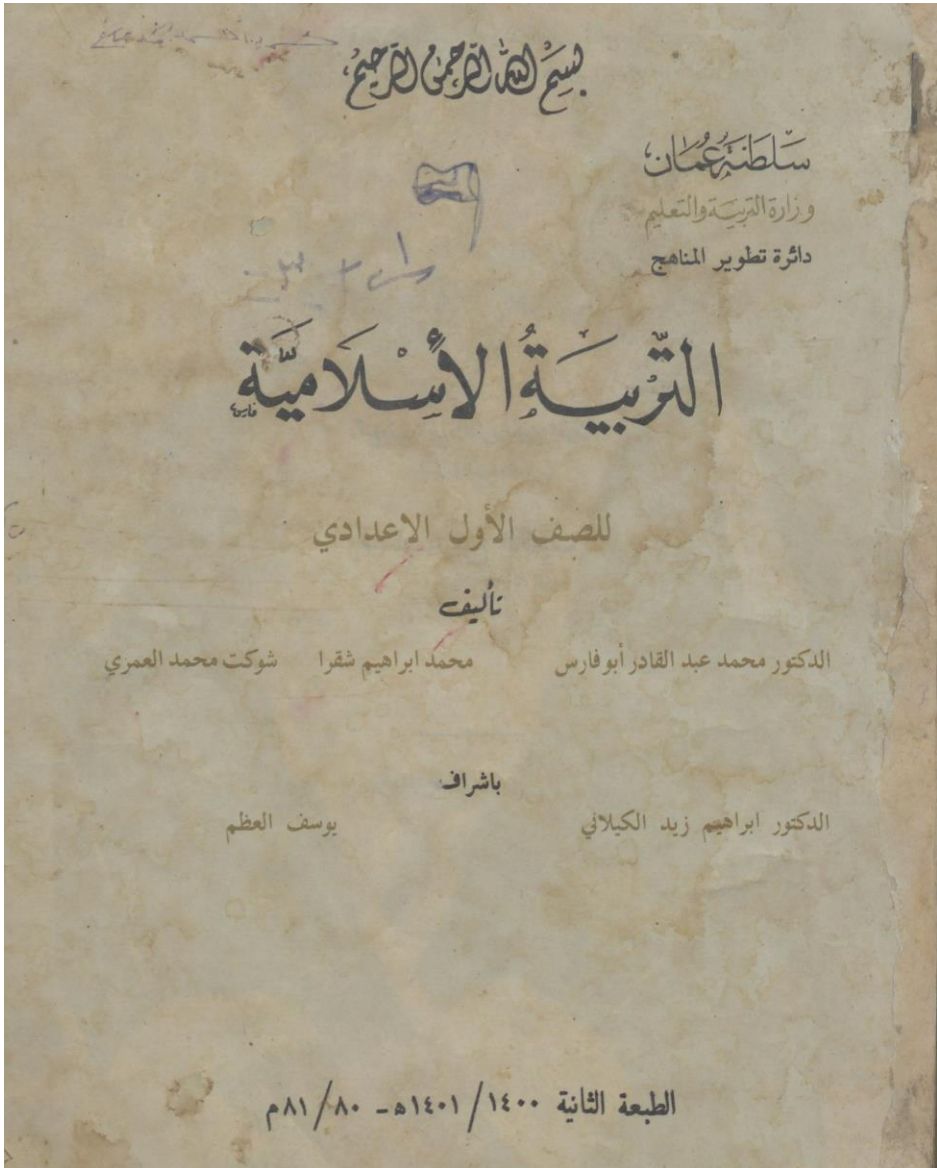 بسم الله الرحمن الرحيم
سَلطنة عُمان
وزارة التربية والتعليم
دائرة تطوير المناهج
التّربيَةُ الأسْلاميَّة
للصف الأول الاعدادي
تأليف
الدكتور محمد عبد القادر أبو فارس محمد ابراهيم شقرا شوكت محمد العمري
باشراف
الدكتور ابراهيم زيد الكيلاني يوسف العظم
الطبعة الثانية ١٤٠٠/١٤٠١هـ - ٨٠/٨١م